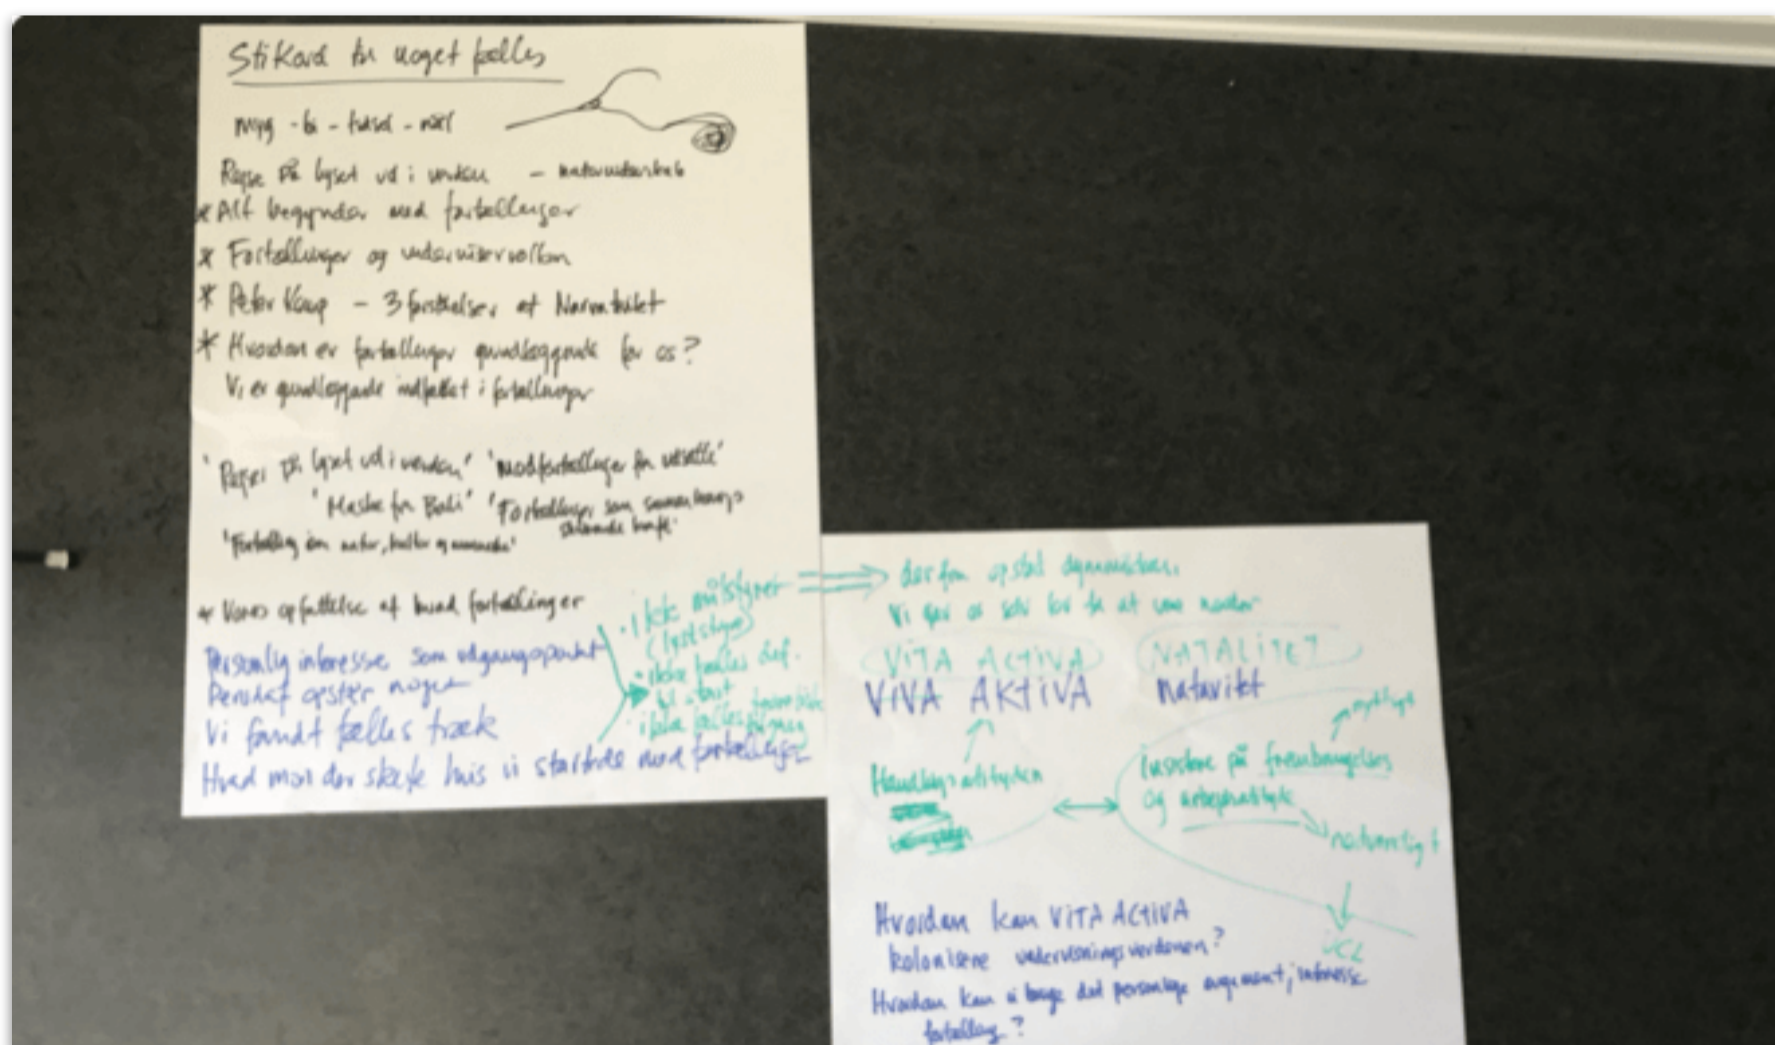 Stikord til noget fælles
myg - bi - trussel -
Rejse på lyset ud i verden - naturvidenskab
* Alt begynder med fortællinger
* Fortællinger og
* Peter Kaup - 3 forståelser af Narrativitet
* Hvordan er fortællinger grundlæggende for os?
Vi er grundlæggende indfældet i fortællinger
'Rejse på lyset ud i verden' 'Modfortællinger fra udsatte'
'Maske fra Bali' 'Fortællinger som sammenhængs
skabende kraft'
'Fortælling om natur, kultur og
* Vores opfattelse af hvad fortællinger
Personlig interesse som udgangspunkt
Derudaf opstår noget
Vi fandt fælles træk
Hvad mon der skete hvis vi startede med fortællinger
• ikke målstyret
(lyststyret)
• ikke fælles def.
• ikke fælles
derfor opstod dynamikken.
Vi gør os selv lov til at
VITA ACTIVA NATALITET
VIVA AKTIVA nativitet
Handlings
Insistere på frembringelses
og arbejds
nyttigt
nødvendigt
UCL
Hvordan kan VITA ACTIVA
kolonisere undervisningsverdenen?
Hvordan kan vi bruge det personlige argument, interesse
fortælling?